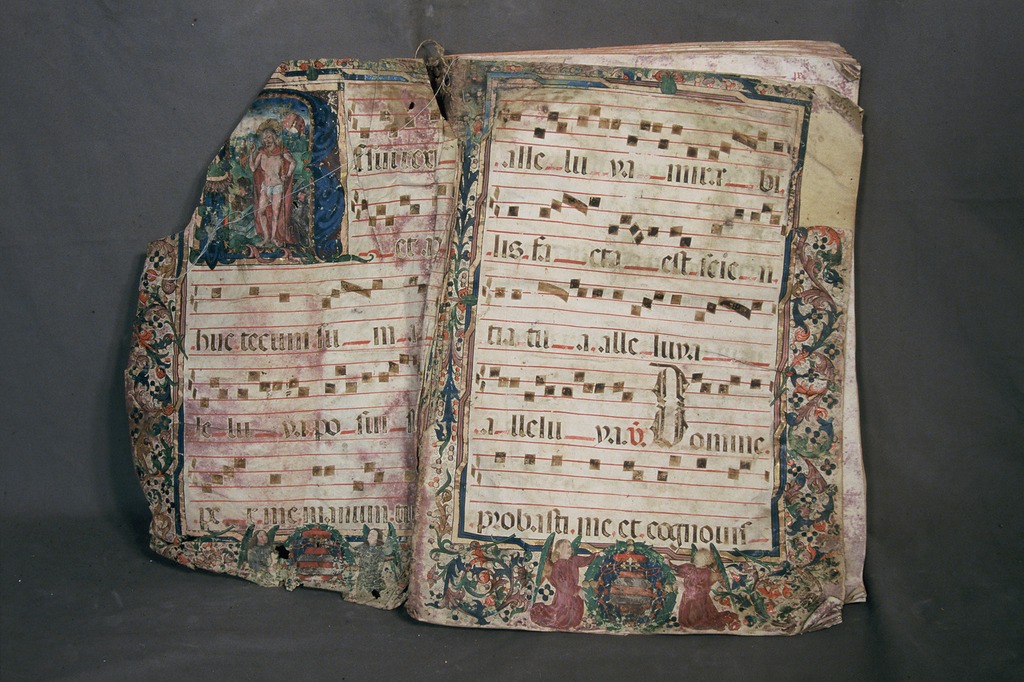 R
et
huc tecum su m a
le lu ya po sui
pe r me manum
alle lu ya mira bi
lis fa cta est scie n
tia tu a alle luya
a llelu ya v Domine
probasti me et cognouis